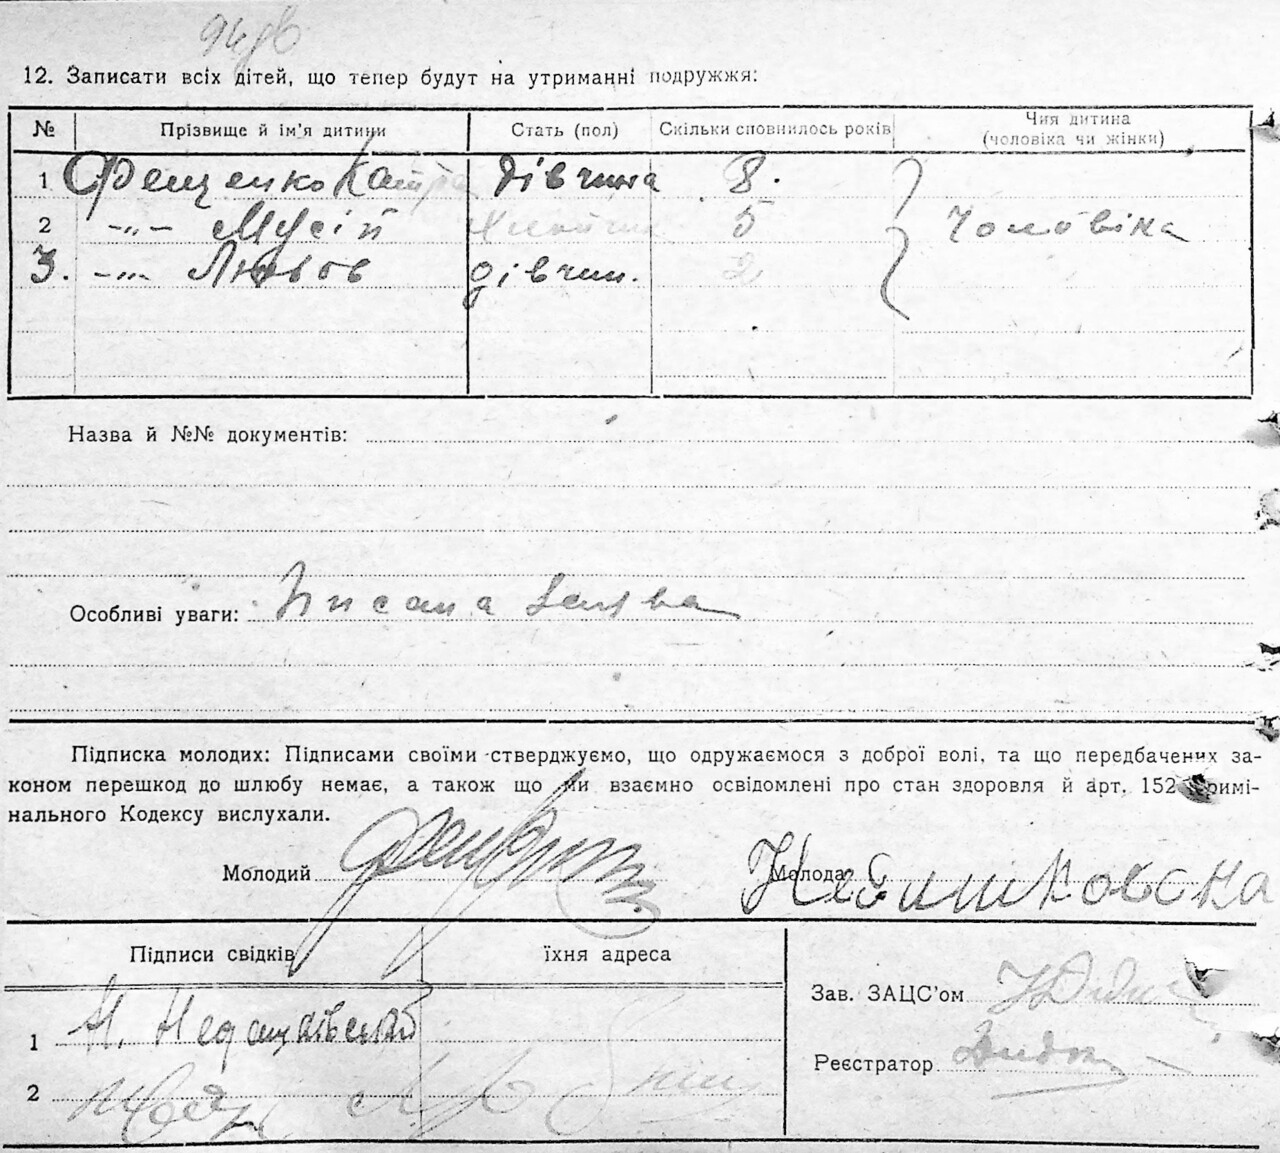 12. Записати всіх дітей, що тепер будут на утриманні подружжя:
№ Прізвище й ім'я дитини Стать (пол) Скільки сповнилось років Чия дитина (чоловіка чи жінки)
1 Фещенко Катря дівчина 8.
2 -„- Мусій хлопчик 5 Чоловіка
3. -„- Любов дівчин. 2
Назва й №№ документів:
Особливі уваги: Писана заява
Підписка молодих: Підписами своїми стверджуємо, що одружаємося з доброї волі, та що передбачених за-
коном перешкод до шлюбу немає, а також що ми взаємно освідомлені про стан здоровля й арт. 152 Кримі-
нального Кодексу вислухали.
Молодий Молода
Підписи свідків їхня адреса
Зав. ЗАЦС'ом
1 Н.
Реєстратор
2